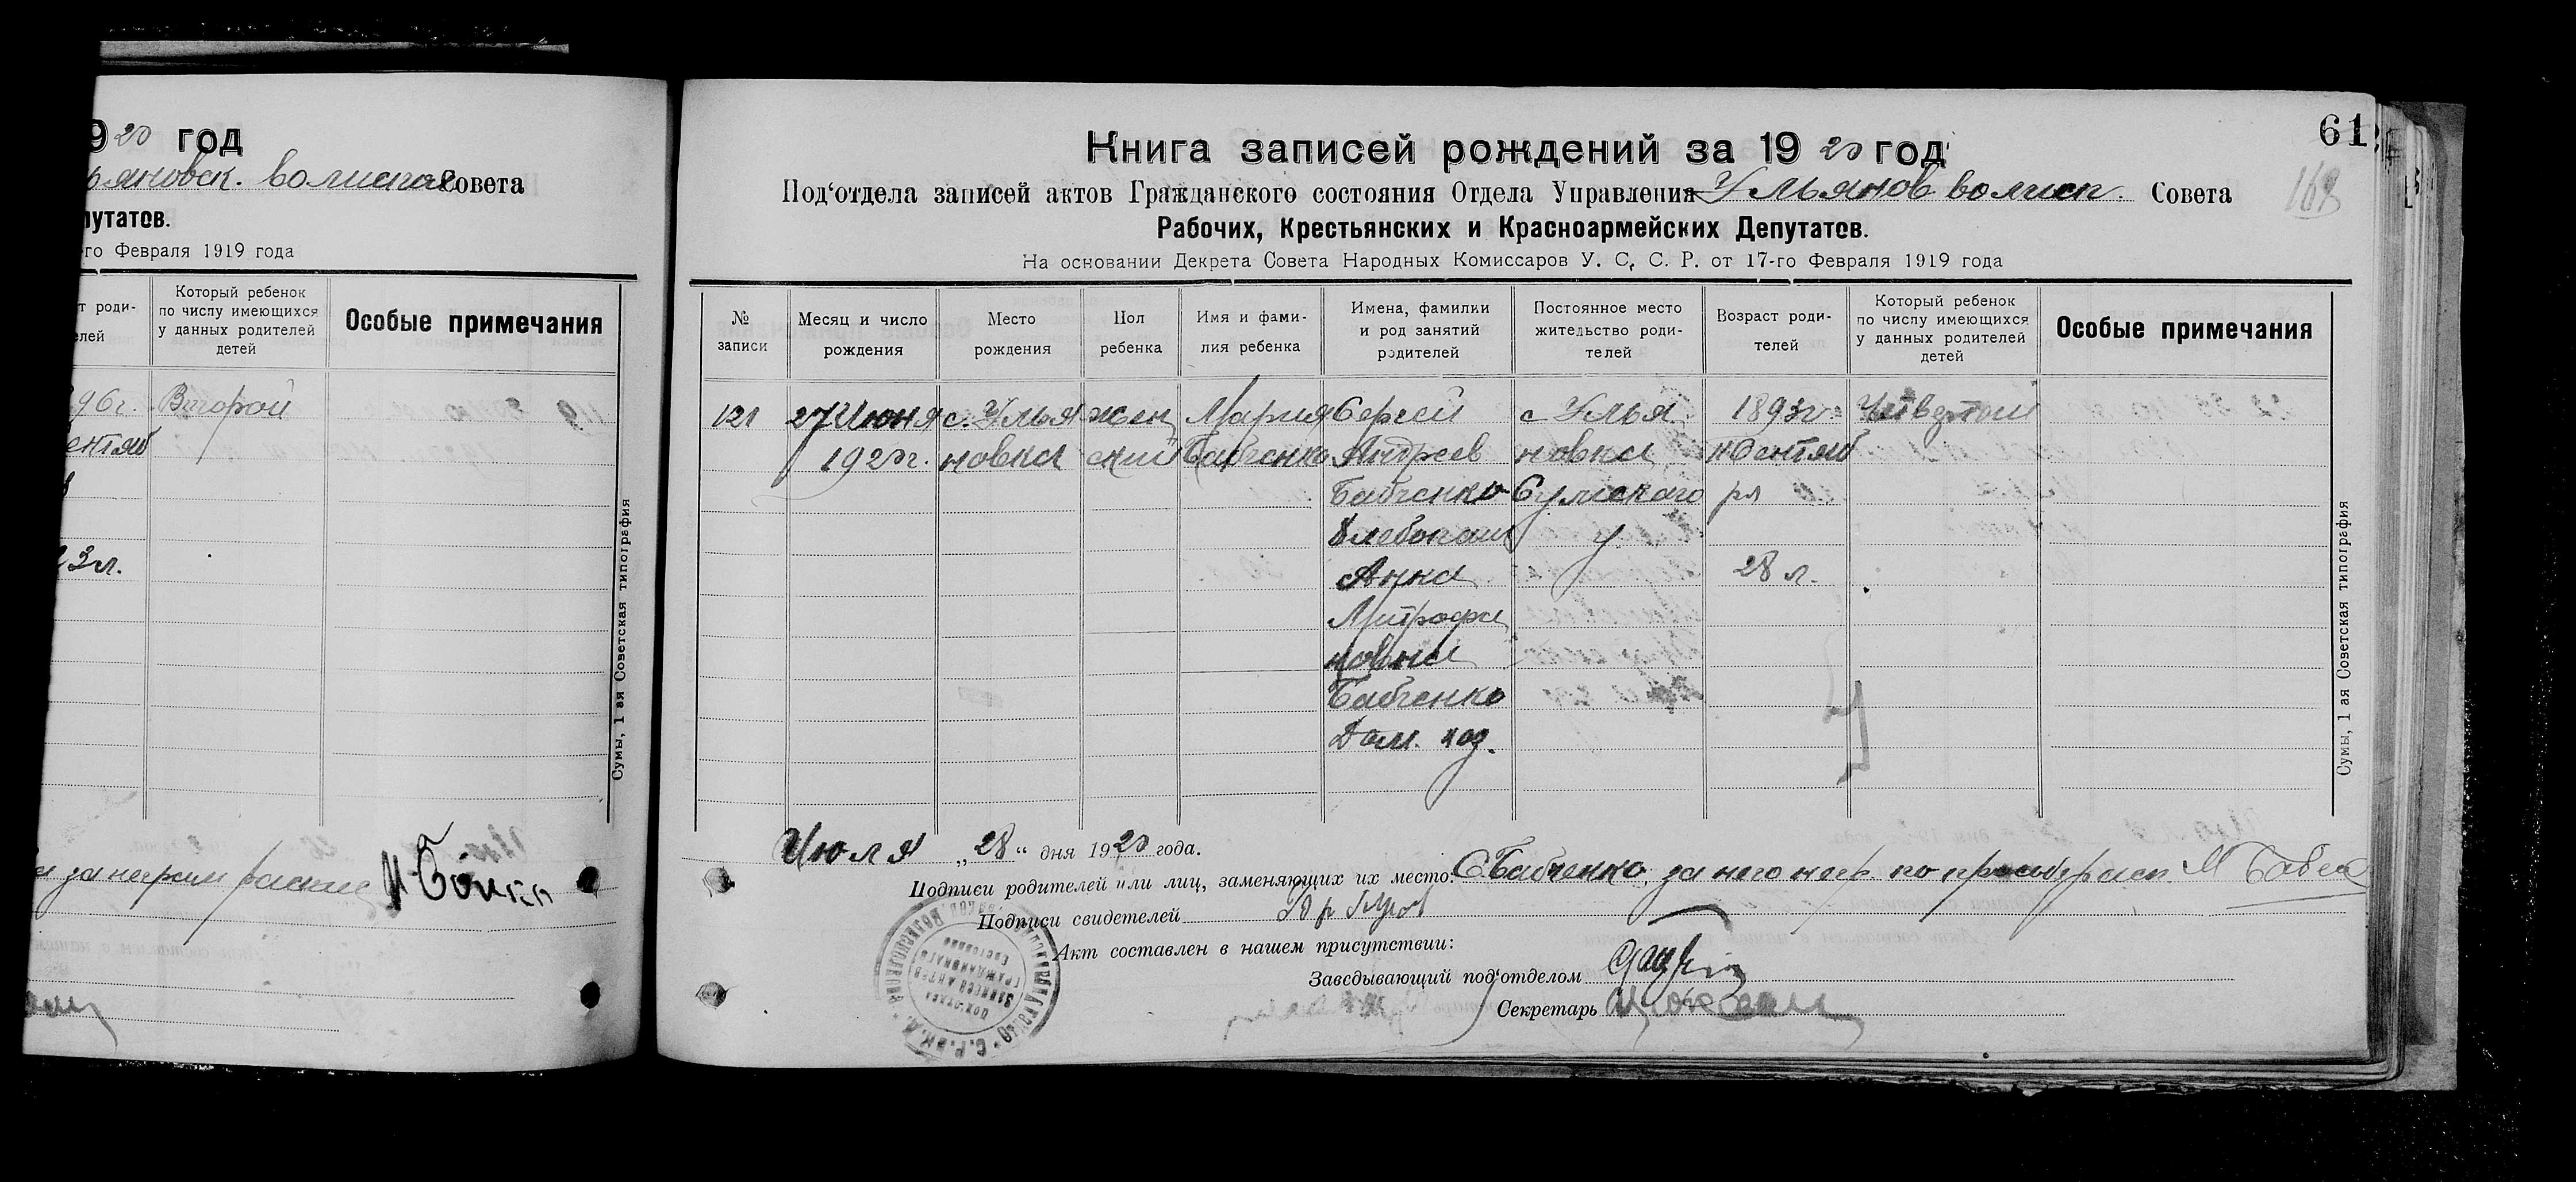 9 20 год
ьяновск. волиспол Совета
путатов.
го Февраля 1919 года
т роди-
елей
Который ребенок
по числу имеющихся
у данных родителей
детей
Особые примечания
96г. Второй
ентяб
23 л.
за неграм распис
Сумы, 1 ая Советская типография
61
168
Книга записей рождений за 19 20 год
Под‘отдела записей актов Гражданского состояния Отдела Управления Ульянов волисп. Совета
Рабочих, Крестьянских и Красноармейских Депутатов.
На основании Декрета Совета Народных Комиссаров У. С. С. Р. от 17-го Февраля 1919 года
№
записи
Месяц и число
рождения
Место
рождения
Пол
ребенка
Имя и фами-
лия ребенка
Имена, фамилии
и род занятий
родителей
Постоянное место
жительство роди-
телей
Возраст роди-
телей
Который ребенок
по числу имеющихся
у данных родителей
детей
Особые примечания
121 27 Июня с. Улья жен Мария Сергей с Улья 1893г.
1920г. новка ский Бабченко Андреев новка Сентяб
Бабченко Сумского ря
Хлебопаш у.
Анна 28 л.
Митрофа
новна
Бабченко
Дом. хоз.
Июля „28“ дня 1920 года.
Подписи родителей или лиц, заменяющих их место: С Бабченко, за него негр. по просьбе расп.
Подписи свидетелей
Акт составлен в нашем присутствии:
Заведывающий под‘отделом
Секретарь
Сумы, 1 ая Советская типография